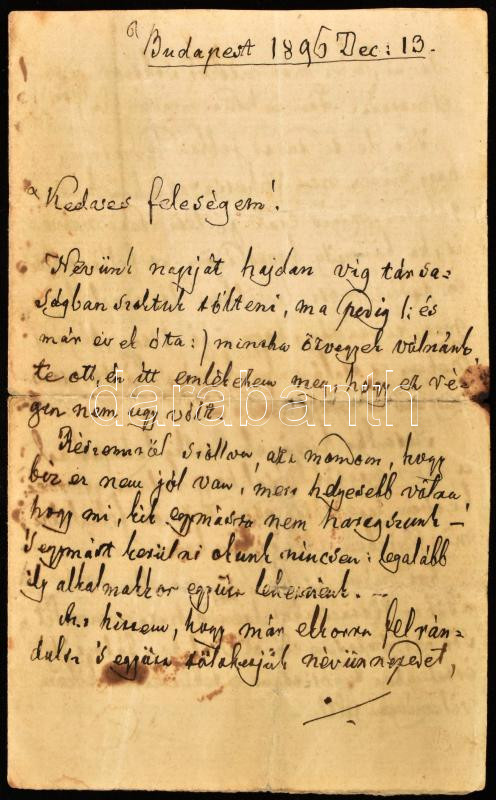 Budapest 1896 Dec: 13.
Kedves feleségem!
Nevünk napját hajdan vig társa-
ságban szoktuk tölteni, ma pedig (: és
már évek óta :) mintha özvegyek volnánk
te ott, én itt emlékezem meg, hogy ez ré-
gen nem ugy volt.
Részemről szólva, azt mondom, hogy
biz ez nem jól van, mert helyesebb volna
hogy mi, kik egymásra nem haragszunk –
's egymást kerülni okunk nincsen: legalább
ily alkalmakkor együtt lehetnénk. –
Azt hiszem, hogy már ekkorra felrán-
dulsz 's együtt névünnepedet,
darabanth